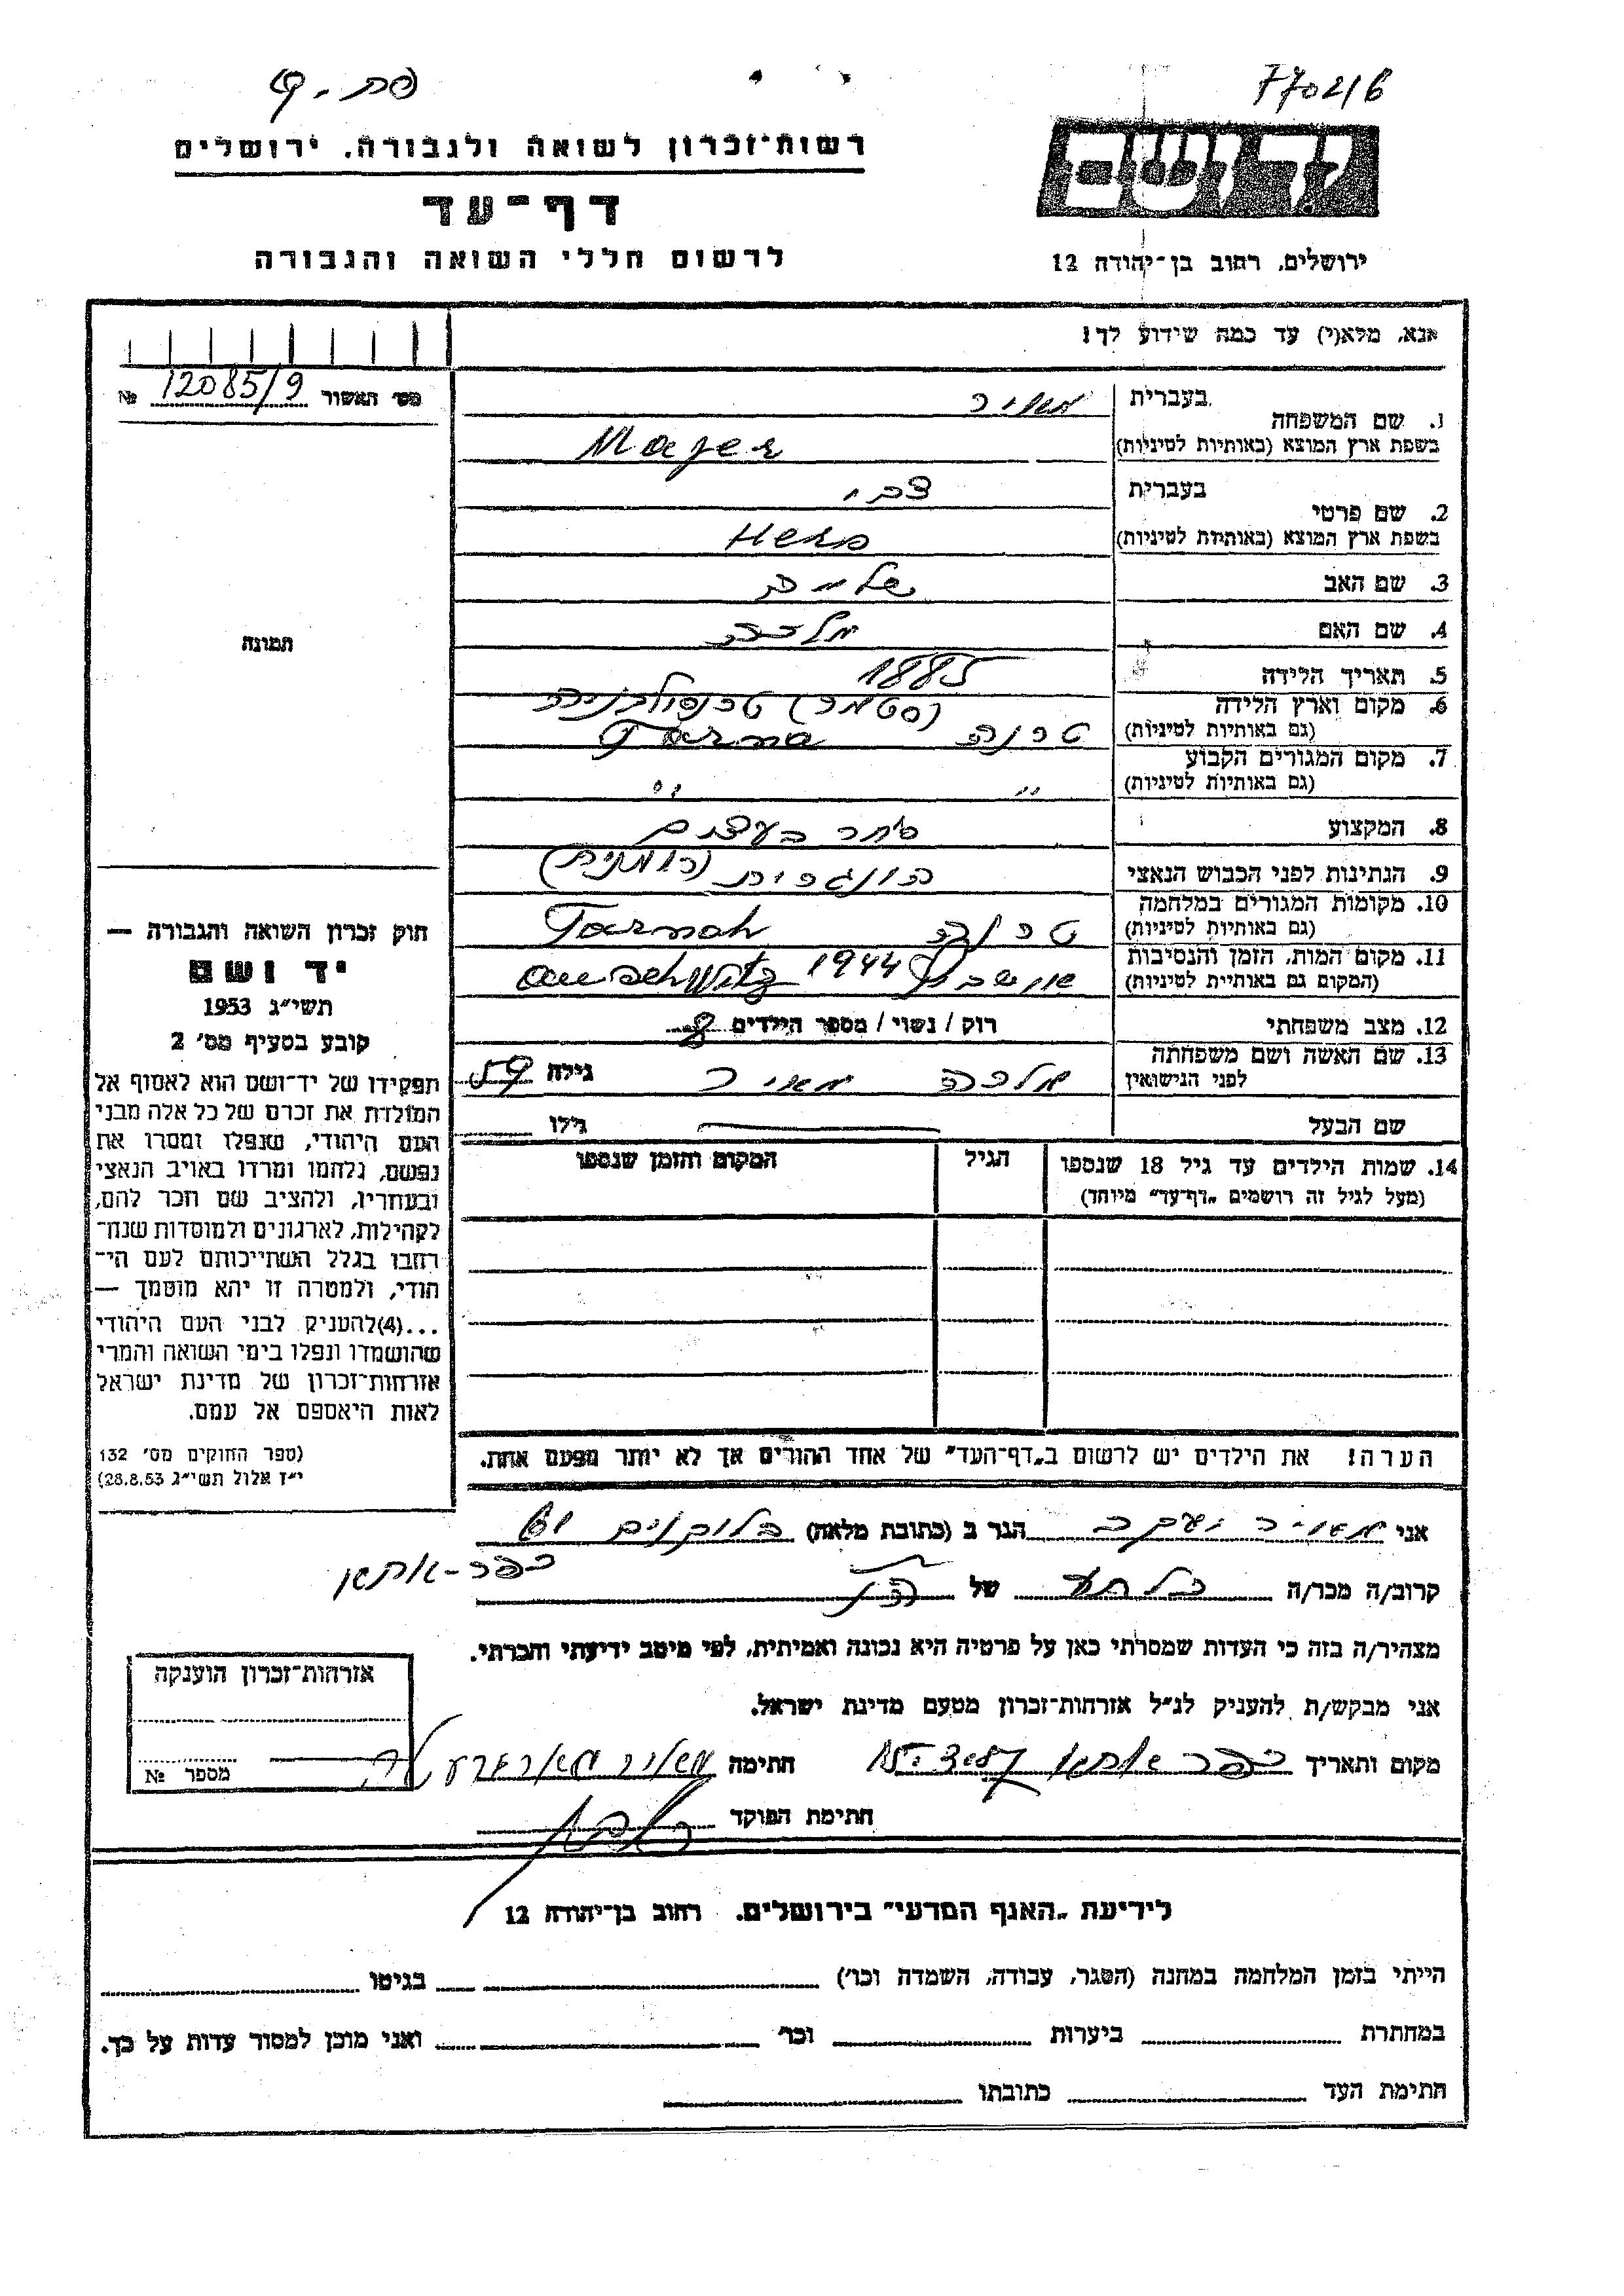 77021/6
רשות־זכרון לשואה ולגבורה, ירושלים
יד ושם
דף־עד
ירושלים, רחוב בן־יהודה 12
לרשום חללי השואה והגבורה
אנא, מלא(י) עד כמה שידוע לך!
מס׳ האשור 12085/9 №
תמונה
1. שם המשפחה
בעברית מאיר
בשפת ארץ המוצא (באותיות לטיניות) Majer
2. שם פרטי
בעברית צבי
בשפת ארץ המוצא (באותיות לטיניות) Hers
3. שם האב
4. שם האם מלכה
5. תאריך הלידה 1885
6. מקום וארץ הלידה (סטמר) טרנסילבניה
(גם באותיות לטיניות) טרנה Tarna
7. מקום המגורים הקבוע
(גם באותיות לטיניות) " "
8. המקצוע סוחר בעצים
9. הנתינות לפני הכבוש הנאצי הונגרית (רומנית)
10. מקומות המגורים במלחמה
(גם באותיות לטיניות) טרנה Tarnah
11. מקום המות, הזמן והנסיבות
(המקום גם באותיות לטיניות) אושביץ 1944 auschwitz
12. מצב משפחתי רוק / נשוי / מספר הילדים 8
13. שם האשה ושם משפחתה
לפני הנישואין מלכה מאיר גילה 59
שם הבעל גילו
14. שמות הילדים עד גיל 18 שנספו הגיל המקום והזמן שנספו
(מעל לגיל זה רושמים „דף־עד״ מיוחד)
הערה! את הילדים יש לרשום ב„דף־העד״ של אחד ההורים אך לא יותר מפעם אחת.
חוק זכרון השואה והגבורה —
יד ושם
תשי״ג 1953
קובע בסעיף מס׳ 2
תפקידו של יד־ושם הוא לאסוף אל
המולדת את זכרם של כל אלה מבני
העם היהודי, שנפלו ומסרו את
נפשם, נלחמו ומרדו באויב הנאצי
ובעוזריו, ולהציב שם וזכר להם,
לקהילות, לארגונים ולמוסדות שנח־
רבו בגלל השתייכותם לעם הי־
הודי, ולמטרה זו יהא מוסמך —
...(4)להעניק לבני העם היהודי
שהושמדו ונפלו בימי השואה והמרי
אזרחות־זכרון של מדינת ישראל
לאות היאספם אל עמם.
(ספר החוקים מס׳ 132
י״ז אלול תשי״ג 28.8.53)
אני מאיר יעקב הגר ב (כתובת מלאה)
כפר-אתא
קרוב/ה מכר/ה של
מצהיר/ה בזה כי העדות שמסרתי כאן על פרטיה היא נכונה ואמיתית, לפי מיטב ידיעתי והכרתי.
אני מבקש/ת להעניק לנ״ל אזרחות־זכרון מטעם מדינת ישראל.
מקום ותאריך כפר אתא חתימה מאיר
חתימת הפוקד
אזרחות־זכרון הוענקה
מספר №
לידיעת „האגף המדעי״ בירושלים, רחוב בן־יהודה 12
הייתי בזמן המלחמה במחנה (הסגר, עבודה, השמדה וכו׳) בגיטו
במחתרת ביערות וכו׳ ואני מוכן למסור עדות על כך.
חתימת העד כתובתו